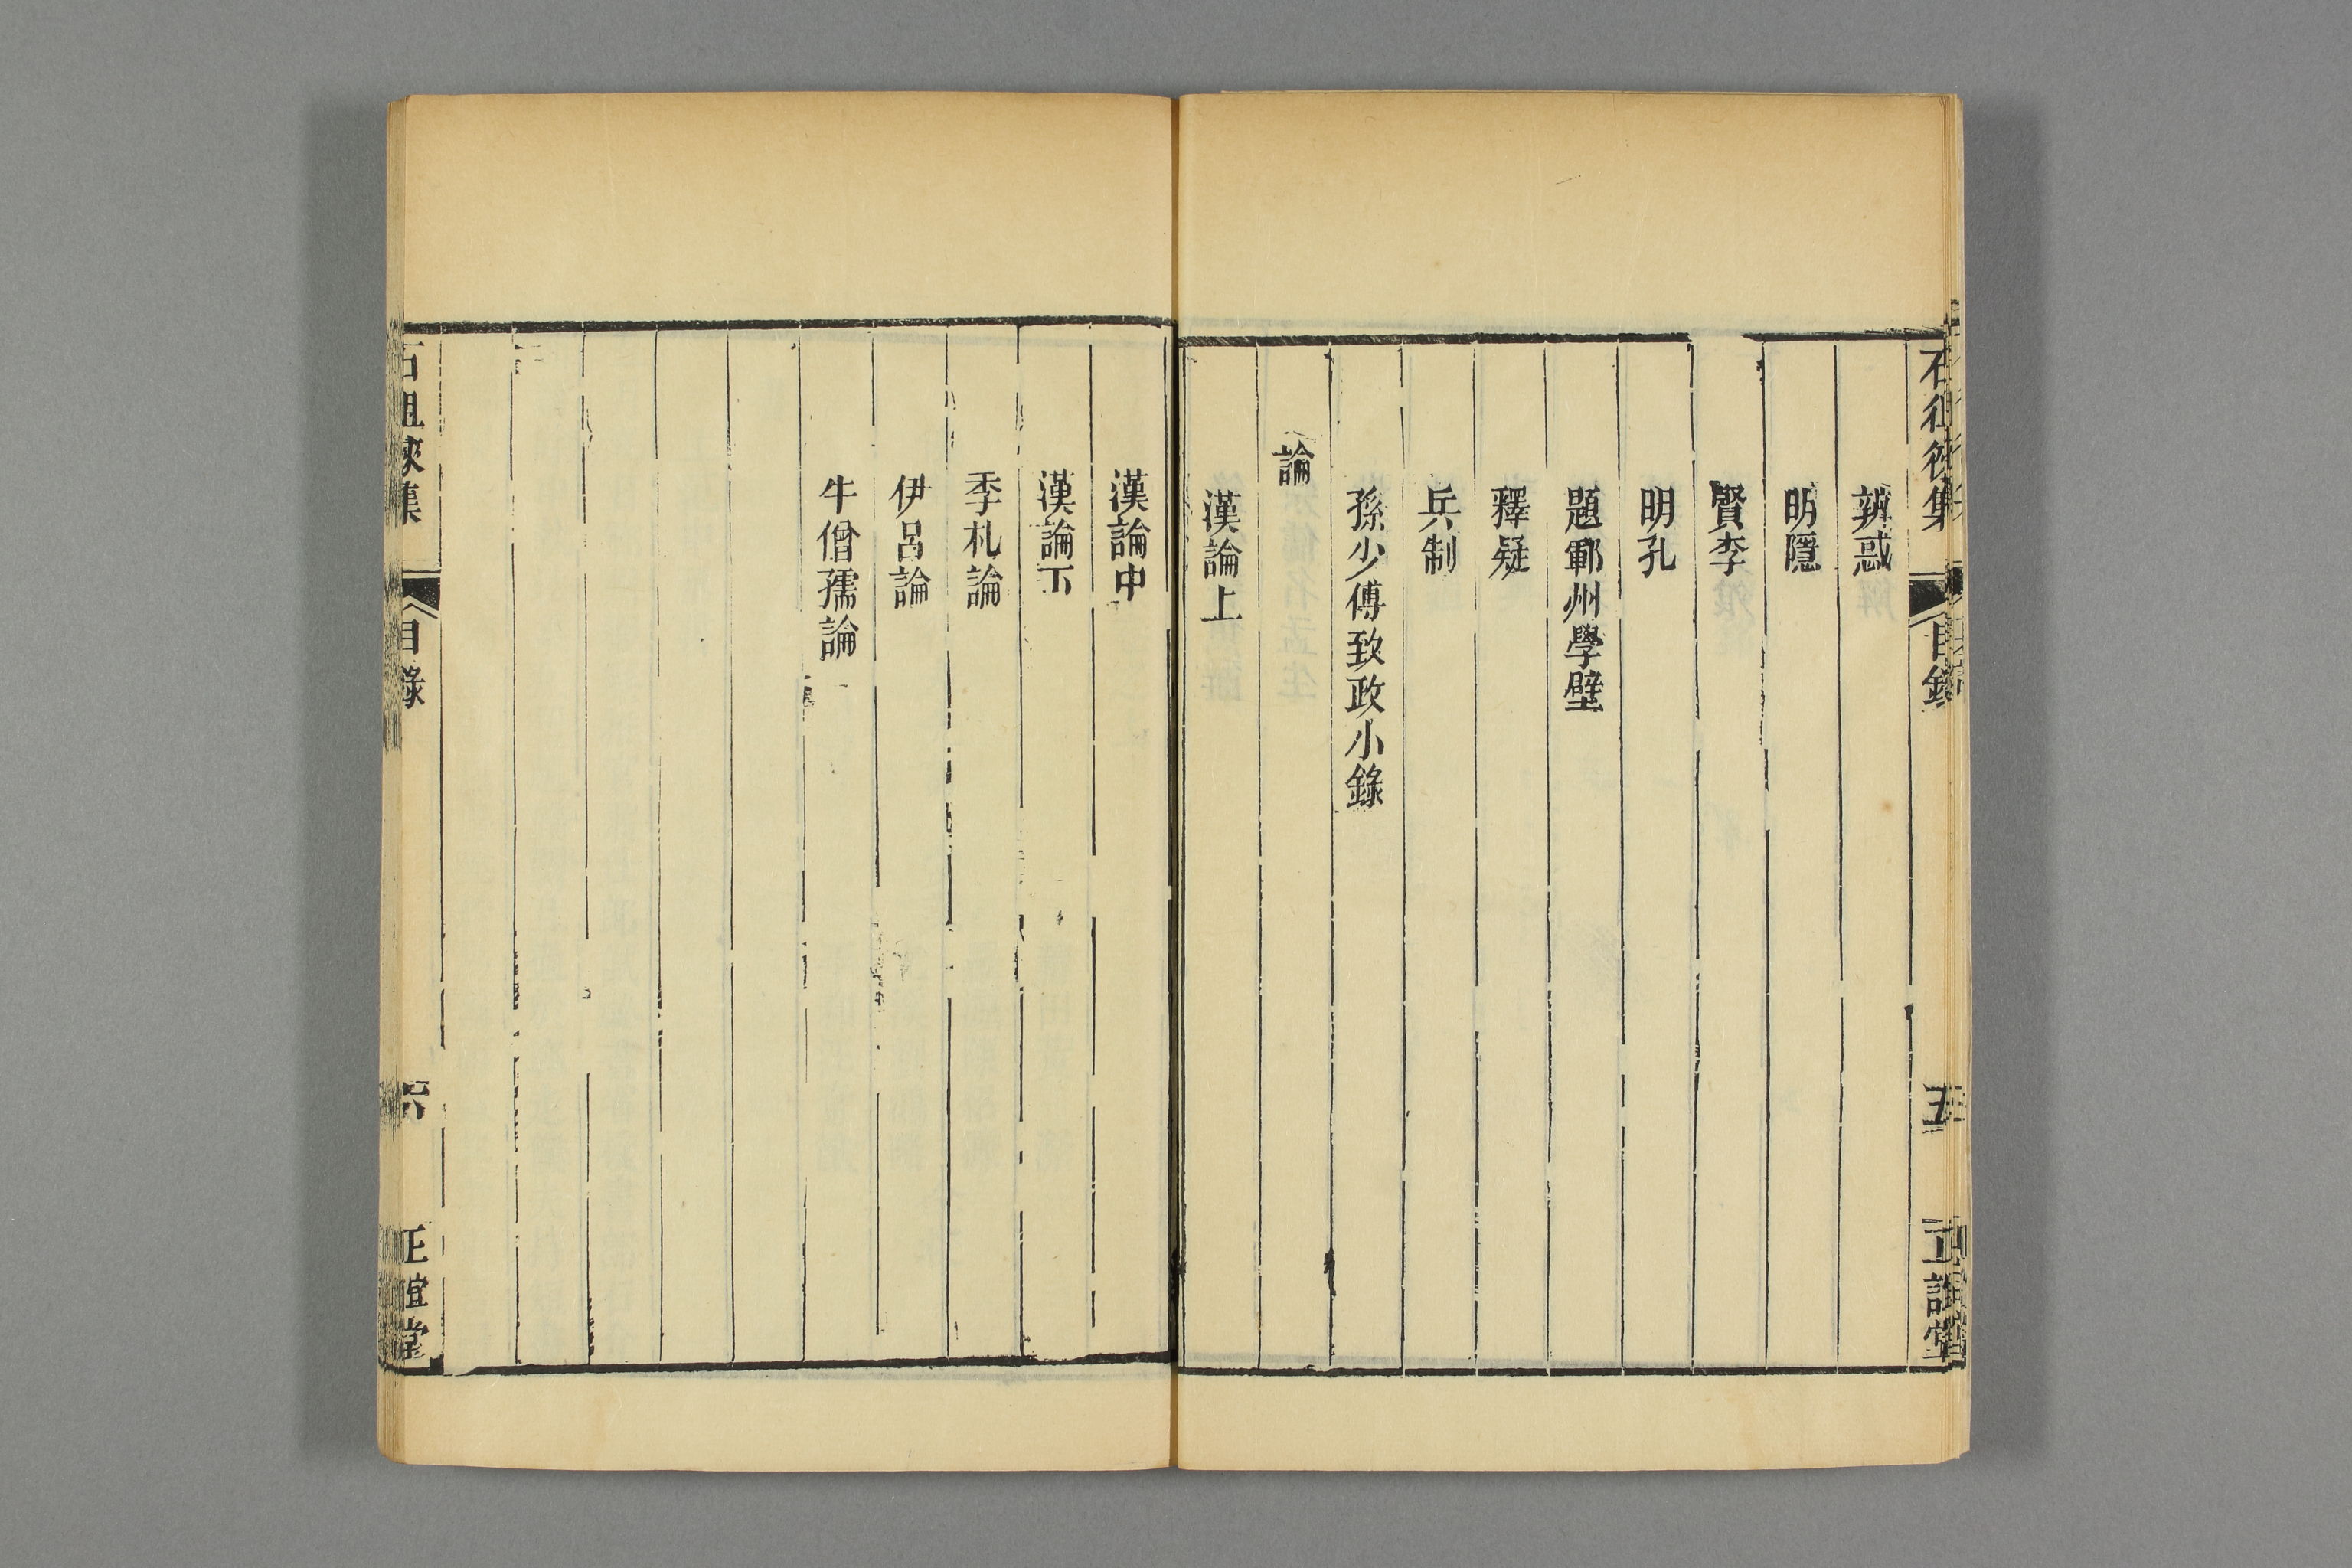 石徂徠集
目錄
五
正誼堂
辨惑
明隱
賢李
明孔
題鄆州學壁
釋疑
兵制
孫少傅致政小錄
論
漢論上
漢論中
漢論下
季札論
伊呂論
牛僧孺論
石徂徠集
目錄
六
正誼堂